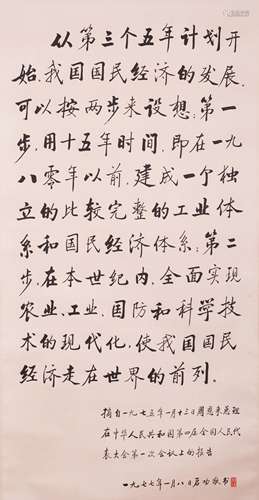 从第三个五年计划开
始,我国国民经济的发展,
可以按两步来设想:第一
步,用十五年时间,即在一九
八零年以前,建成一个独
立的比较完整的工业体
系和国民经济体系;第二
步,在本世纪内,全面实现
农业、工业、国防和科学技
术的现代化,使我国国民
经济走在世界的前列.
摘自一九七五年一月十三日周恩来总理
在中华人民共和国第四届全国人民代
表大会第一次会议上的报告
一九七七年一月八日启功敬书